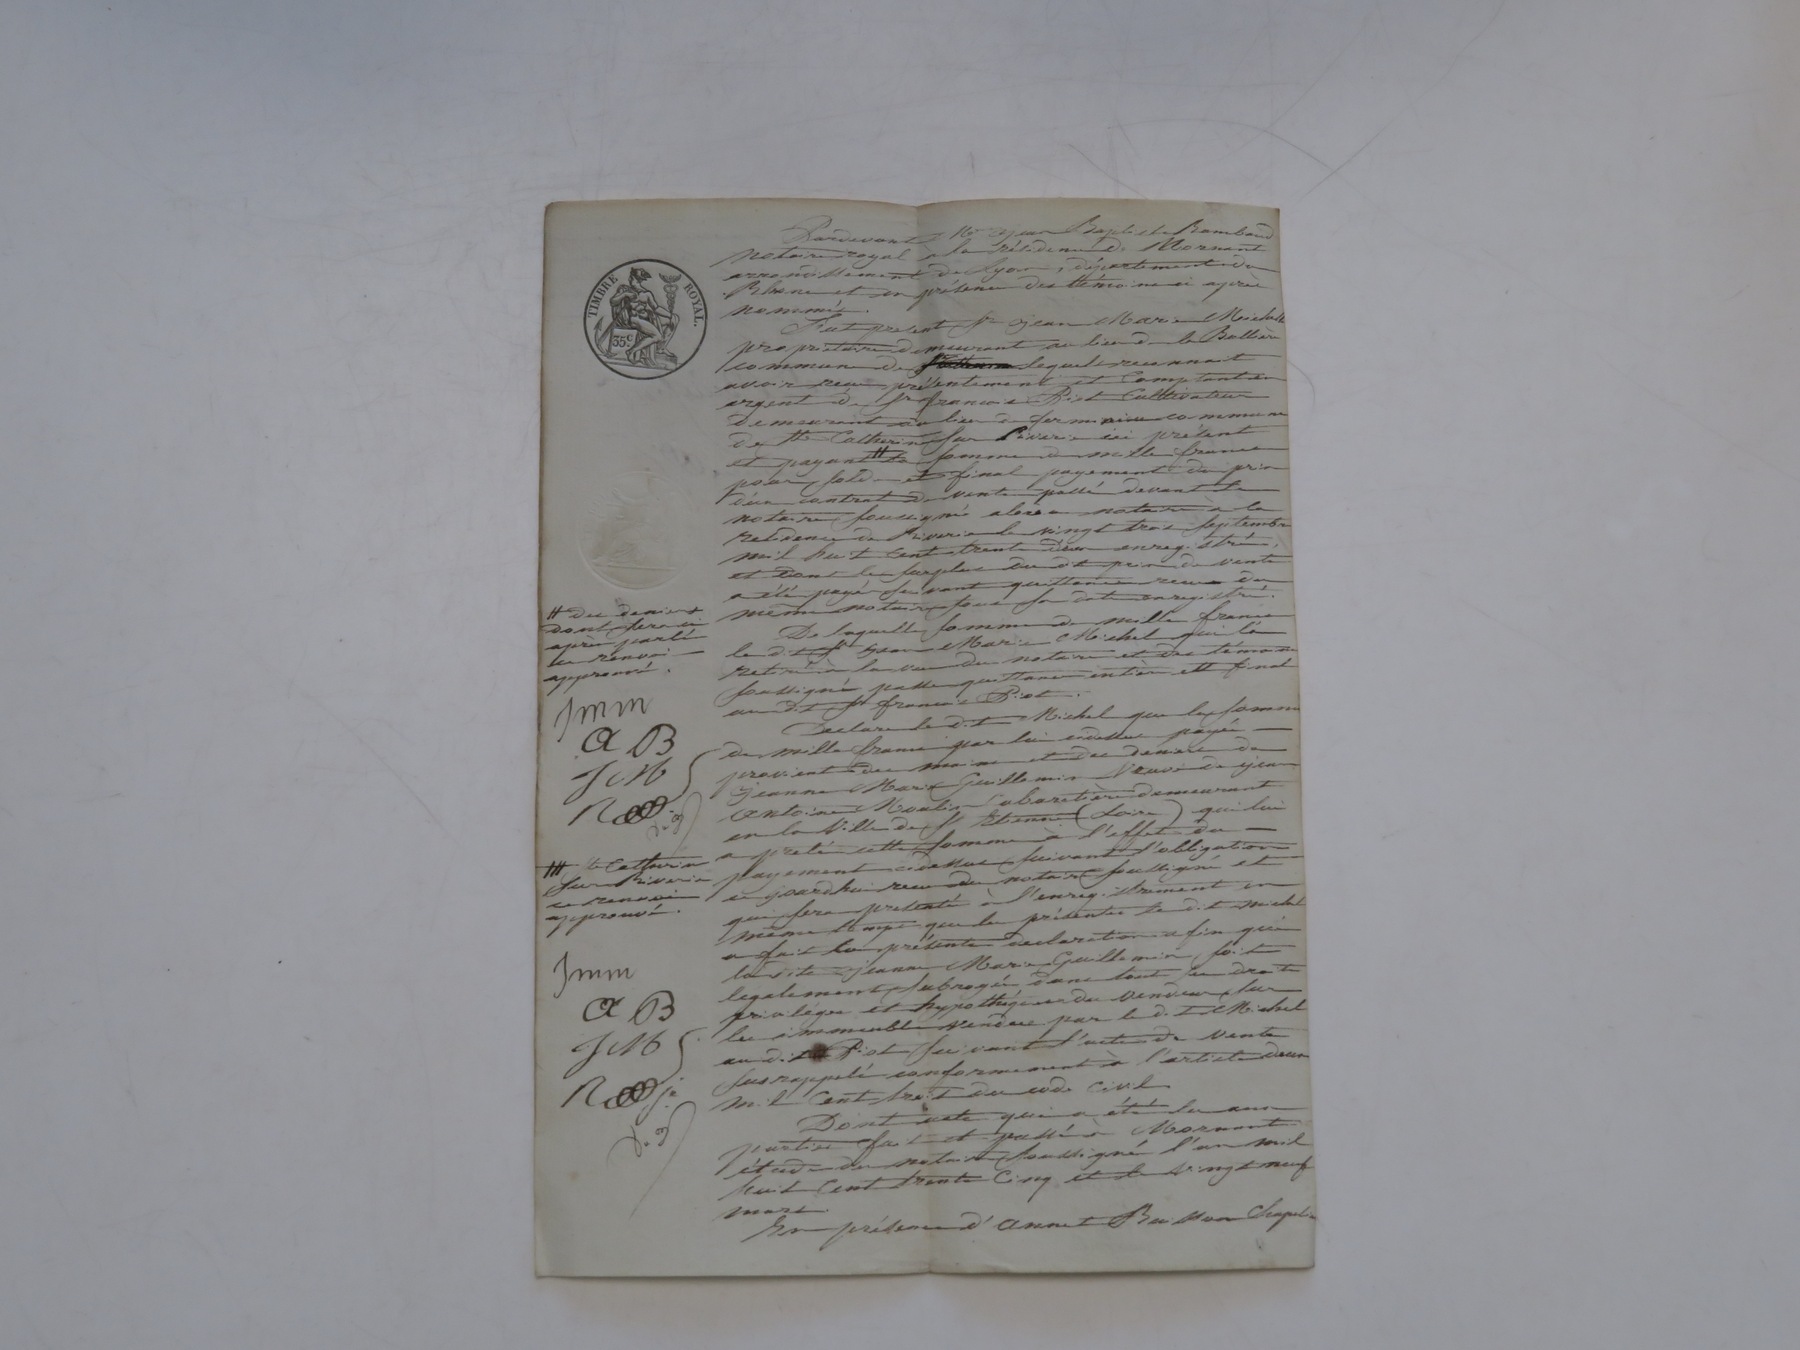 TIMBRE ROYAL.
35c
Pardevant Me Jean Baptiste Rambaud
notaire royal à la résidence de Mornant
arrondissement de Lyon, département du
Rhône et en présence des témoins ci après
nommés.
Fut présent Sr Jean Marie Michel
propriétaire demeurant au lieu de la
commune de lequel reconnait
avoir reçu présentement et comptant en
argent de Sr françois Piot Cultivateur
demeurant au lieu de commune
de Ste Catherine sur Riverie ici présent
et payant # la somme de mille francs
pour solde et final payement du prix
d'un contrat de vente passé devant le
notaire soussigné alors notaire à la
residence de Riverie le vingt trois septembre
mil huit cent trente deux enregistré,
et dont le surplus du dt prix de vente
a été payé suivant quittance reçue du
même notaire sous sa date enregistré.
De laquelle somme de mille francs
le dit Sr Jean Marie Michel qui l'a
retiré à la vue du notaire et des témoins
soussignés passe quittance entière et final
au dit Sr françois Piot.
Declare le dit Michel que la somme
de mille francs par lui cidessus payée
provient des mains et des deniers de
Jeanne Marie Guillemin Veuve de Jean
Antoine Moulin Cabaretière demeurant
en la Ville de St Etienne (Loire) qui lui
a preté cette somme à l'effet du
payement cidessus suivant l'obligation
ce jourdhui reçue du notaire soussigné et
que sera présenté à l'enregistrement en
même temps que les présentes le dit Michel
a fait la présente déclaration afin que
la dite Jeanne Marie Guillemin soit
legalement subrogée dans tout les droits
privilége et hypothéques du vendeur sur
les immeubles vendus par le dit Michel
au dit Piot suivant l'acte de vente
susrappelé conformement à l'article deux
mil cent trois du code civil
Dont acte qui a été lu aux
parties fait et passé à Mornant
étude du notaire soussigné l'an mil
huit Cent trente Cinq et le vingt neuf
mars.
En présence d'Annet Buisson Chapel
# des deniers
dont sera ci
après parlé
ce renvoi
approuvé.
Jmm
a B
JcM
R
# Ste Catherine
sur Riverie
ce renvoi
approuvé.
Jmm
a B
JcM
R